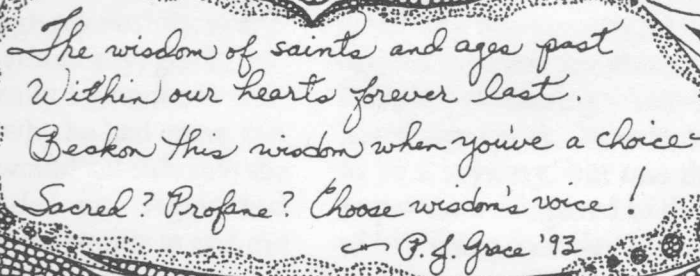 The wisdom of saints and ages past
Within our hearts forever last.
Beckon this wisdom when you've a choice-
Sacred? Profane? Choose wisdom's voice!
P. J. Grace '93